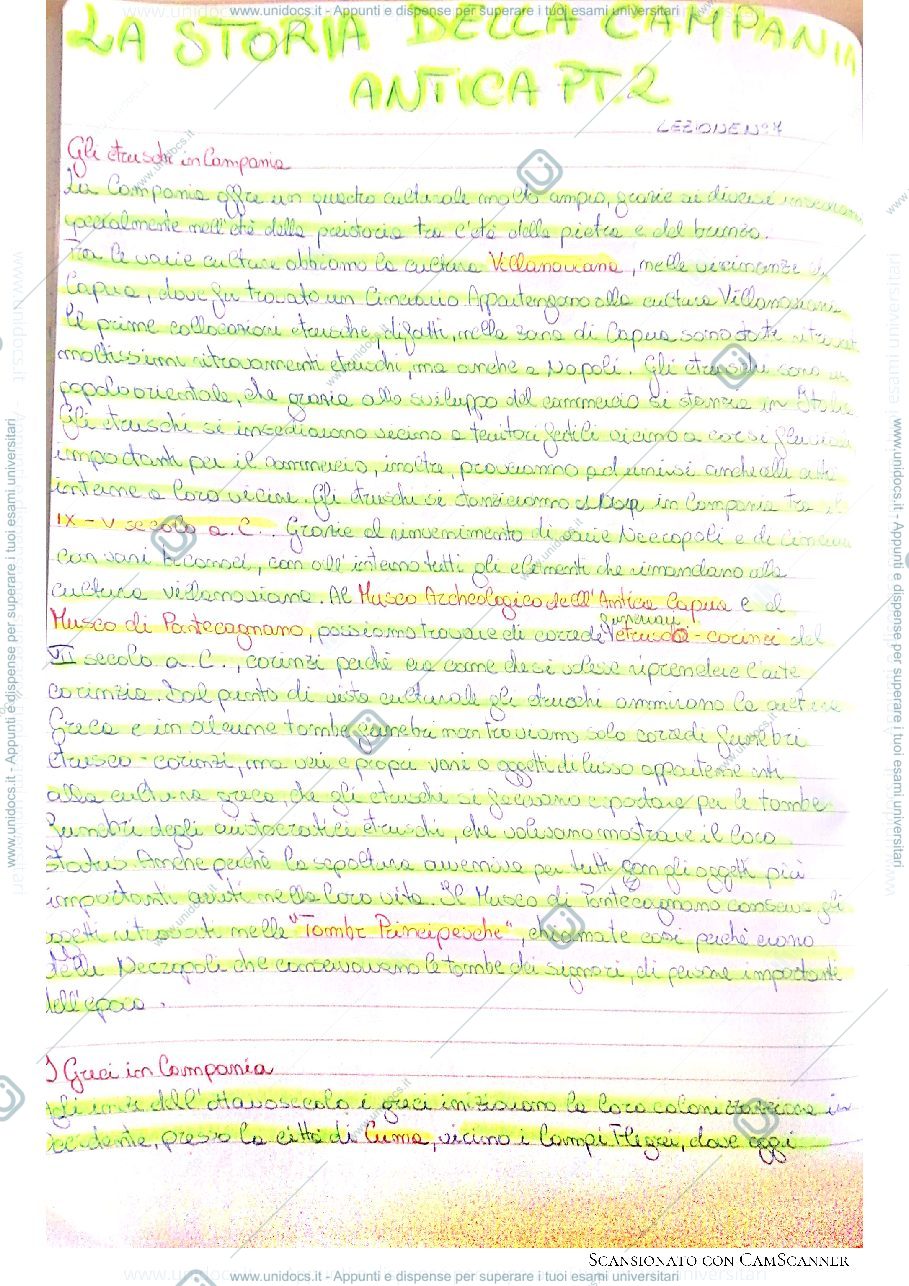 www.unidocs.it - Appunti e dispense per superare i tuoi esami universitari
LA STORIA DELLA CAMPANIA
ANTICA PT.2
LEZIONE N°7
Gli etruschi in Campania
La Campania offre un quadro culturale molto ampio, grazie ai diversi
specialmente nell'età della preistoria tra l'età della pietra e del bronzo.
Tra le varie culture abbiamo la cultura Villanoviana, nelle vicinanze di
Capua, dove fu trovato un Cinerario Appartengano alla cultura Villanoviana
Le prime collocazioni etrusche, difatti, nella zona di Capua sono state
moltissimi ritrovamenti etruschi, ma anche a Napoli. Gli etruschi sono un
popolo orientale, che grazie allo sviluppo del commercio si stanzia in Italia
Gli etruschi si insediarono vicino a territori fertili vicino a corsi fluviali
importanti per il commercio, inoltre, provarono ad unirsi anche alle città
interne a loro vicine. Gli etruschi si stanziarono in Campania tra il
IX - V secolo a.C.. Grazie al rinvenimento di varie Necropoli e di
con vasi biconici, con all'interno tutti gli elementi che rimandano alla
cultura villanoviana. Al Museo Archeologico dell'Antica Capua e al
Museo di Pontecagnano, possiamo trovare di corredi etrusco - corinzi del
VII secolo a.C., corinzi perchè era come che si volesse riprendere l'arte
corinzia. Dal punto di vista culturale gli etruschi ammirano la cultura
Greca e in alcune tombe funebri non troviamo solo corredi funebri
etrusco - corinzi, ma veri e propri vasi o oggetti di lusso appartenenti
alla cultura greca, che gli etruschi si facevano esportare per le tombe
funebri degli aristocratici etruschi, che volevano mostrare il loro
status. Anche perchè la sepoltura avveniva per tutti con gli oggetti più
importanti avuti nella loro vita. Il Museo di Pontecagnano conserva gli
oggetti ritrovati nelle "Tombe Principesche", chiamate così perchè erano
delle Necropoli che conservavano le tombe dei signori, di persone importanti
dell'epoca.
I Greci in Campania
Agli inizi dell'ottavo secolo i greci iniziarono la loro colonizzazione in
occidente, presso la città di Cuma, vicino i Campi Flegrei, dove oggi
Scansionato con CamScanner
www.unidocs.it - Appunti e dispense per superare i tuoi esami universitari